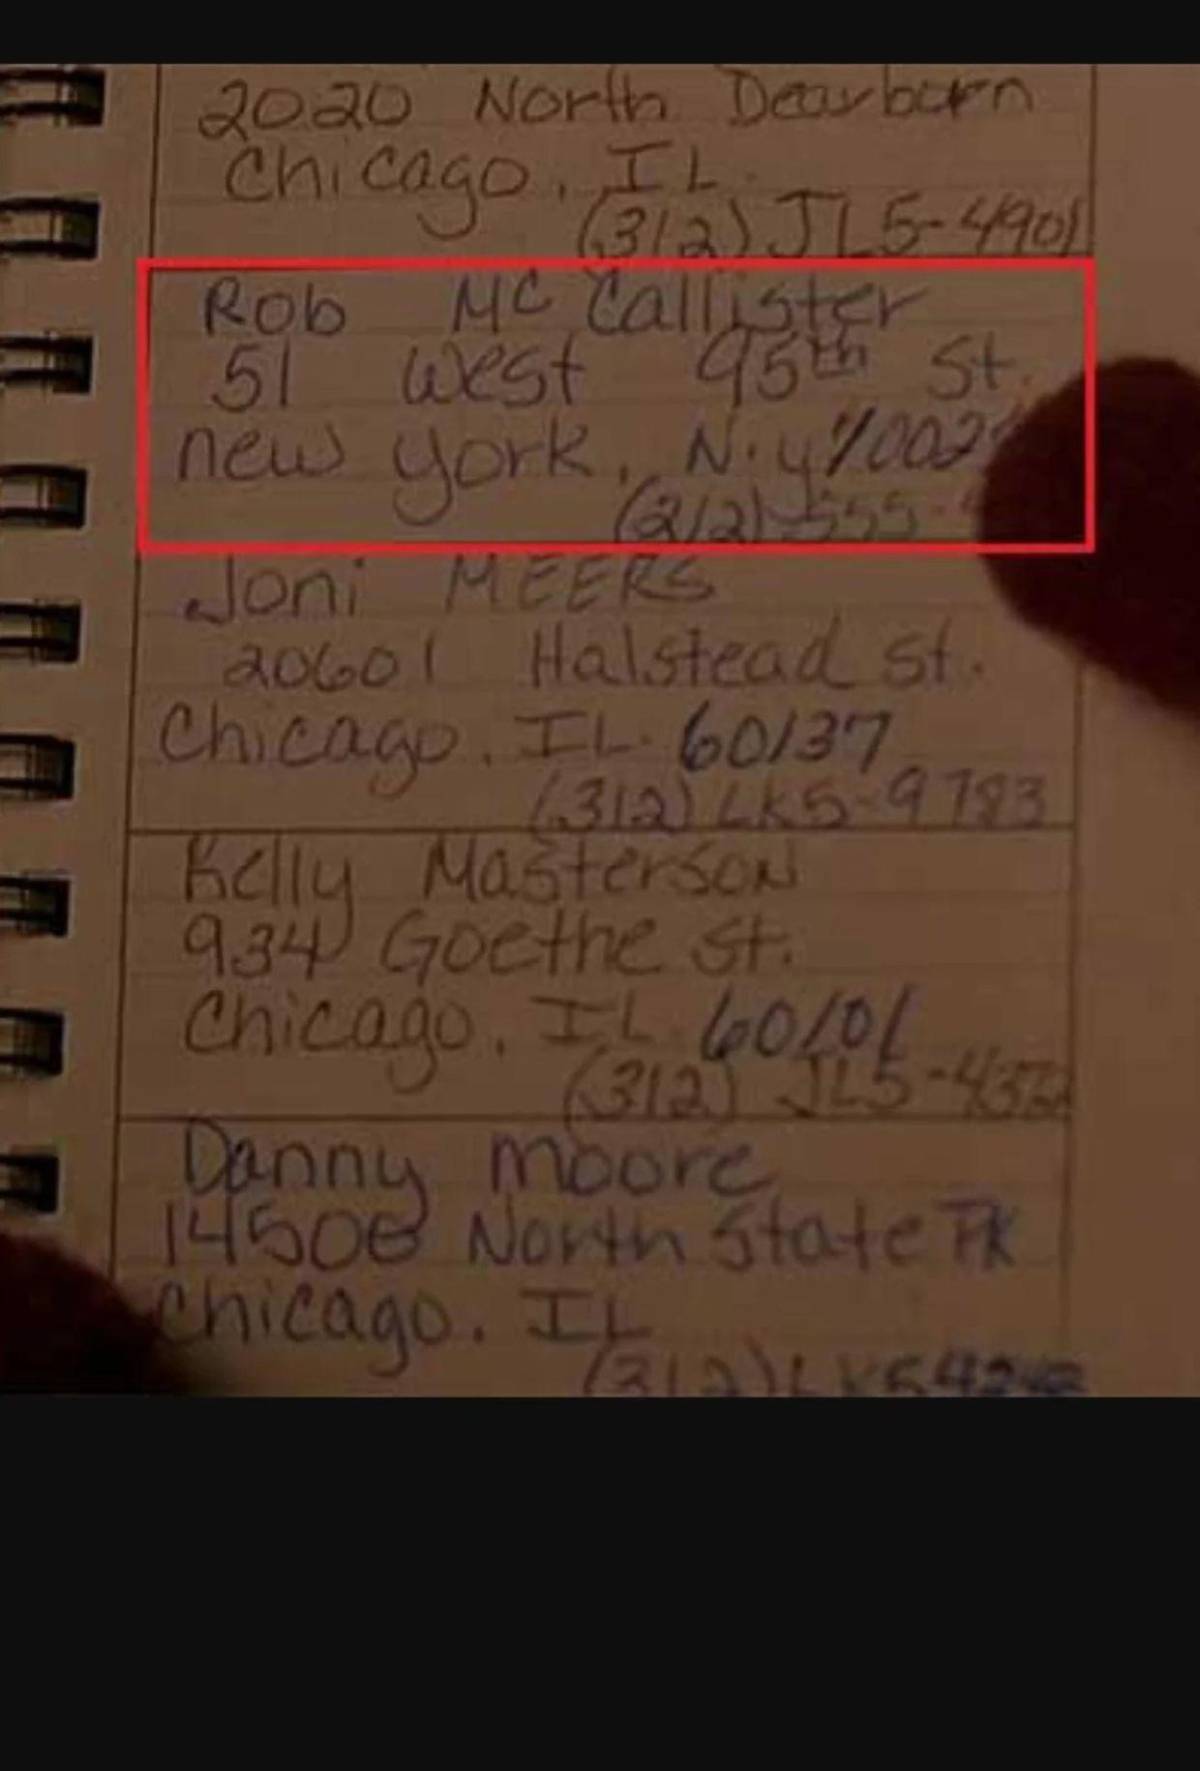 2020 North Dearburn
Chicago, IL.
(312) JL5-4901
Rob McCallister
51 West 95th St.
new york, N.y
(212) 555-
Joni MEERS
20601 Halstead St.
Chicago, IL. 60137
(312) LK5-9783
Kelly Masterson
934 Goethe St.
Chicago, IL 60101
(312) JL5-
Danny Moore
North State PK
Chicago. IL
(312)